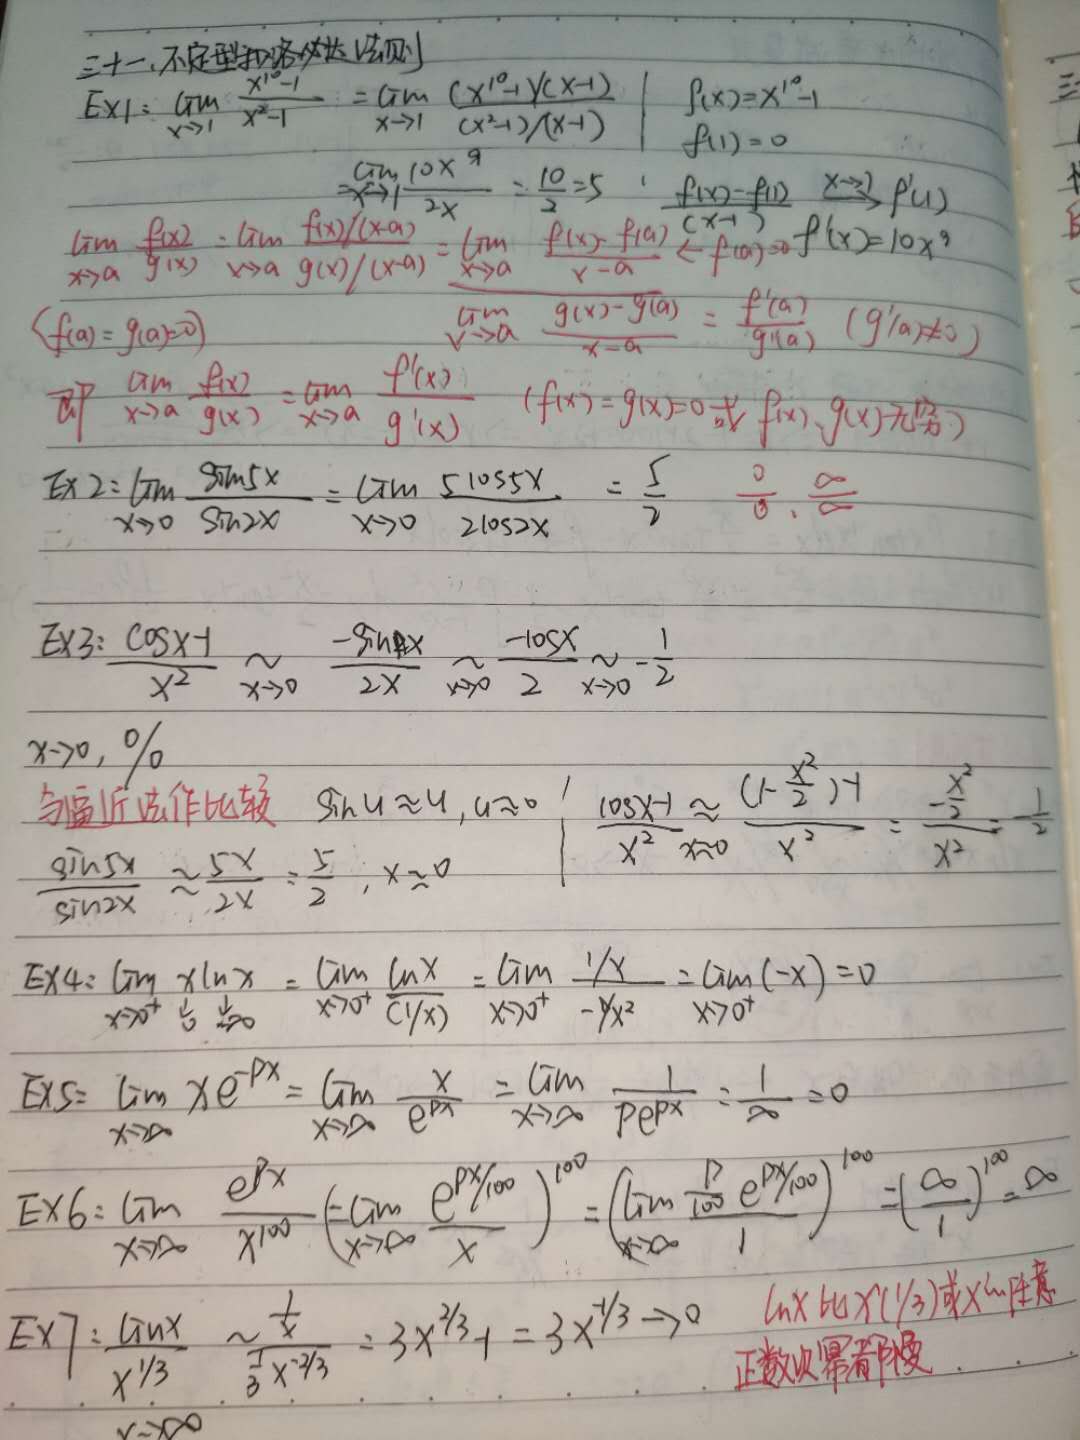 三十一、不定型和洛必达法则
EX1: lim x→1 (x^10-1)/(x^2-1) = lim x→1 ((x^10-1)/(x-1))/((x^2-1)/(x-1)) | f(x)=x^10-1
f(1)=0
= lim x→1 10x^9/2x = 10/2 = 5 (f(x)-f(1))/(x-1) x→1 → f'(1)
f'(x)=10x^9
lim x→a f(x)/g(x) = lim x→a (f(x)/(x-a))/(g(x)/(x-a)) = lim x→a (f(x)-f(a))/(x-a) ← f(a)=0
(f(a)=g(a)=0) lim x→a (g(x)-g(a))/(x-a) = f'(a)/g'(a) (g'(a)≠0)
即 lim x→a f(x)/g(x) = lim x→a f'(x)/g'(x) (f(x)=g(x)=0或f(x)、g(x)→无穷)
EX2: lim x→0 sin5x/sin2x = lim x→0 5cos5x/2cos2x = 5/2 0/0、∞/∞
EX3: (cosx-1)/x^2 ~ x→0 -sinx/2x ~ x→0 -cosx/2 ~ x→0 -1/2
x→0, 0/0
与逼近法作比较 sinu≈u, u≈0 | (cosx-1)/x^2 ≈ x≈0 ((1-x^2/2)-1)/x^2 = (-x^2/2)/x^2 = -1/2
sin5x/sin2x ≈ 5x/2x = 5/2, x≈0
EX4: lim x→0+ x lnx = lim x→0+ lnx/(1/x) = lim x→0+ (1/x)/(-1/x^2) = lim x→0+ (-x) = 0
↓0 ↓-∞
EX5: lim x→∞ xe^-px = lim x→∞ x/e^px = lim x→∞ 1/pe^px = 1/∞ = 0
EX6: lim x→∞ e^px/x^100 = (lim x→∞ e^px/100/x)^100 = (lim x→∞ (p/100 e^px/100)/1)^100 = (∞/1)^100 = ∞
EX7: lnx/x^1/3 ~ (1/x)/(1/3 x^-2/3) = 3x^2/3-1 = 3x^-1/3 → 0
x→∞
lnx比x^(1/3)或x的任意
正数次幂都慢